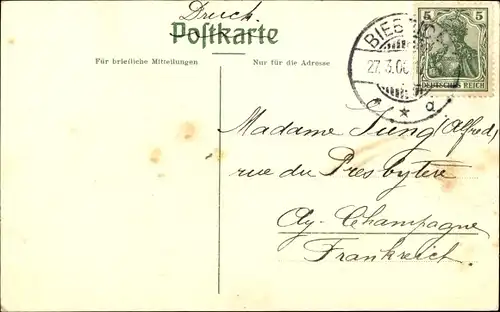 Druck.
Postkarte
Für briefliche Mitteilungen
Nur für die Adresse
BIEB
27. 3. 06
* a
5 5
DEUTSCHES REICH
Madame Jung (Alfred)
rue du Presbytère
Ay-Champagne
Frankreich.